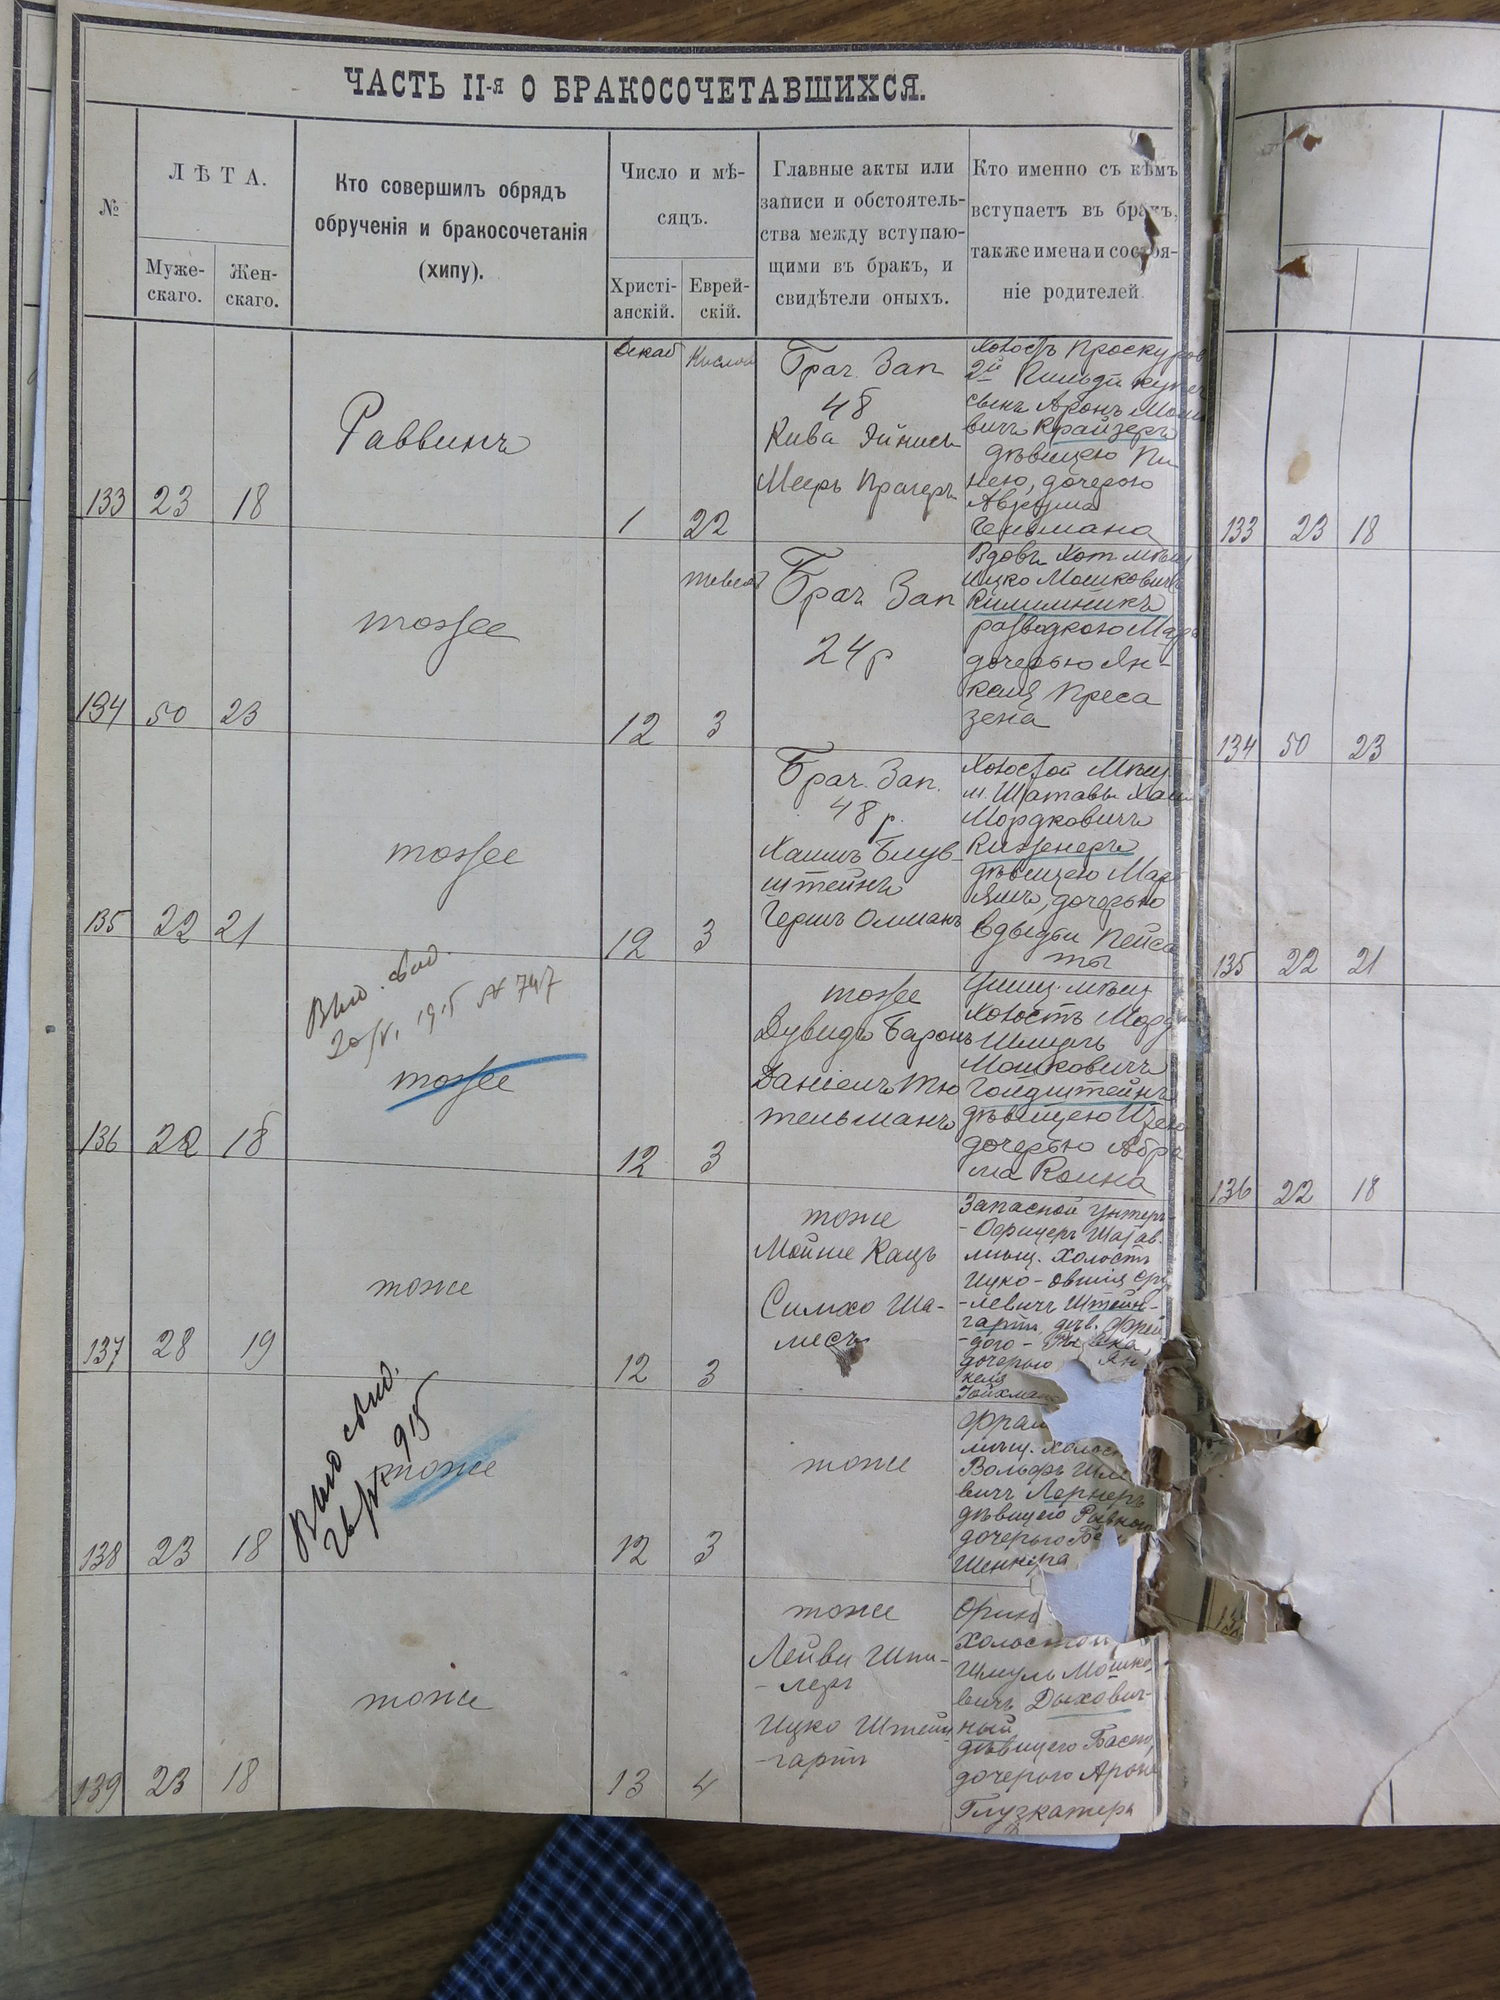 ЧАСТЬ II-я О БРАКОСОЧЕТАВШИХСЯ.
№
ЛѢТА.
Муже-
скаго.
Жен-
скаго.
Кто совершилъ обрядъ
обрученія и бракосочетанія
(хипу).
Число и мѣ-
сяцъ.
Христі-
анскій.
Еврей-
скій.
Главные акты или
записи и обстоятель-
ства между вступаю-
щими въ бракъ, и
свидѣтели оныхъ.
Кто именно съ кѣмъ
вступаетъ въ бракъ,
также имена и состоя-
ніе родителей.
133 23 18
Раввинъ
Декаб
1
Кислов
22
Брач. Зап
48
Кива Эйнисъ
Мееръ Прагеръ
Холостъ Проскуров
2й Гильдіи купеч
сынъ Аронъ Мош
вичъ Крайзеръ
дѣвицею Пи
нею, дочерью
Аврума
Гельмана
134 50 23
тоже
12
тевеса
3
Брач Зап
24 р
Вдовъ Хот мѣщ
Ицко Мошковичъ
Килимникъ
разводкою Мар
дочерью Ян-
келя Преса
зена
135 22 21
тоже
12 3
Брач. Зап.
48 р.
Хаимъ Блув-
штейнъ
Гершъ Олманъ
Холостой Мѣщ
м. Шатавы Хаим
Мордковичъ
Кизенеръ
дѣвицею Мар
дочерью
Пейса
136 22 18
Выд. свид.
20/V, 1915 № 747
тоже
12 3
тоже
Дувидъ Баронъ
Даніель Тю
тельманъ
Ушиц. мѣщ
холостъ Морд
Шмуль
Мошковичъ
Голдштейнъ
дѣвицею
дочерью Абра
ма Колна
137 28 19
тоже
12 3
тоже
Мойше Кацъ
Симхо Ша-
месъ
Запасной Унтеръ-
- Офицеръ Шатав.
мѣщ. холостъ
Ицко - Овшія Сру
-левичъ Штейн-
гартъ дѣв. Фрей
дого -
дочерью Ян
келя
Гойхман
138 23 18
Выд свид.
915
тоже
12 3
тоже
Фрам
мѣщ. холост
Вольфъ Шле
вичъ Лернеръ
дѣвицего
дочерью Бе
Шенкера
139 23 18
тоже
13 4
тоже
Лейви Шпи-
-леръ
Ицко Штейн
-гартъ
Орин
холостой,
Шмуль Мошко-
вичъ Дыхович-
ный
дѣвицего Басею,
дочерью Арона
Глузкатера
133 23 18
134 50 23
135 22 21
136 22 18